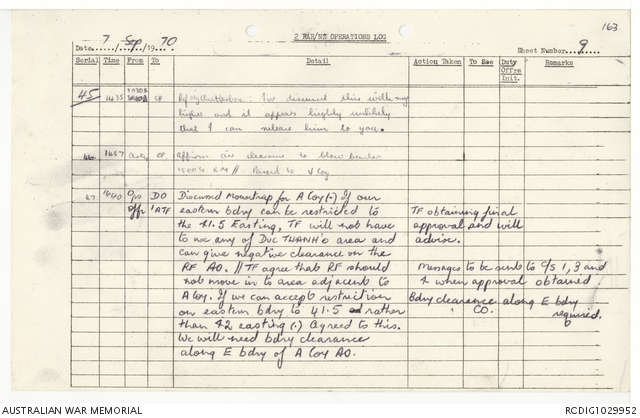 163
2 RAR/NZ OPERATIONS LOG
Date 7 / Sep / 1970
Sheet Number 9
Serial Time From To Detail Action Taken To See Duty Offrs Init. Remarks
45 1435 CP I've discussed this with my
higher and it appears highly unlikely
that I can release him to you.
46 CP Affirm clearance to blow
Passed to V Coy
47 1640 Ops Offr DO 1ATF Discussed Mousetrap for A Coy (-) If our
eastern bdry can be restricted to
the 41.5 Easting, TF will not have
to use any of DUC THANH'S area and
can give negative clearance on the
RF AO. // TF agree that RF should
not move in to area adjacent to
A Coy. If we can accept restriction
on eastern bdry to 41.5 rather
than 42 easting (.) Agreed to this.
We will need bdry clearance
along E bdry of A Coy AO.
TF obtaining final
approval and will
advise.
Messages to be sent to C/S 1, 3 and
4 when approval obtained
Bdry clearance along E bdry
CO. required.
AUSTRALIAN WAR MEMORIAL
RCDIG1029952